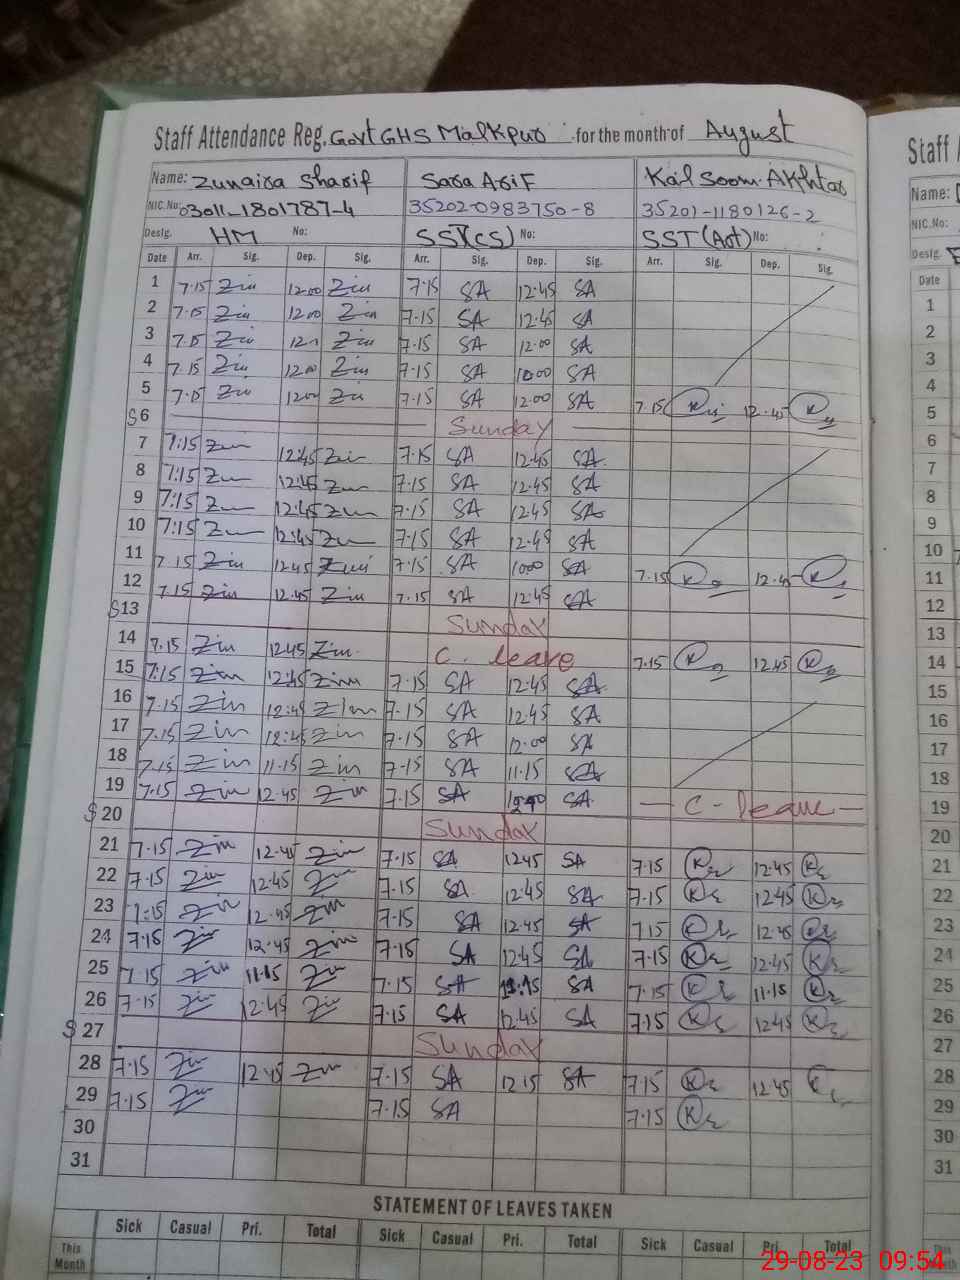 Staff Attendance Reg. Govt GHS Malkpur for the month of August
Staff
Name: Zunaira Sharif Sara Arif Kalsoom Akhtar
Name:
NIC.No: 03011-1801787-4 35202-0983750-8 35201-1180126-2
NIC.No:
Desig. HM No: SST(CS) No: SST(Art) No:
Desig.
Date Arr. Sig. Dep. Sig. Arr. Sig. Dep. Sig. Arr. Sig. Dep. Sig.
Date
1 7.15 Zin 12.00 Zin 7.15 SA 12.45 SA
2 7.15 Zin 12.00 Zin 7.15 SA 12.45 SA
3 7.15 Zin Zin 7.15 SA 12.00 SA
4 7.15 Zin 12.00 Zin 7.15 SA 10.00 SA
5 7.15 Zin 12.00 Zin 7.15 SA 12.00 SA 7.15 K 12.45 K
S 6 Sunday
7 7:15 Zin 12:45 Zin 7.15 SA 12.45 SA
8 7:15 Zin 12:45 Zin 7.15 SA 12.45 SA
9 7:15 Zin 12:45 Zin 7.15 SA 12.45 SA
10 7:15 Zin 12:45 Zin 7.15 SA 12.45 SA
11 7.15 Zin 12.45 Zin 7.15 SA 10.00 SA 7.15 K 12.45 K
12 7.15 Zin 12.45 Zin 7.15 SA 12.45 SA
S 13 Sunday
14 7.15 Zin 12.45 Zin C. leave 7.15 K 12.45 K
15 7:15 Zin 12:45 Zin 7.15 SA 12.45 SA
16 7.15 Zin 12:45 Zin 7.15 SA 12.45 SA
17 7.15 Zin 12:45 Zin 7.15 SA 12.00 SA
18 7.15 Zin 11.15 Zin 7.15 SA 11.15 SA
19 7.15 Zin 12.45 Zin 7.15 SA SA C- leave
S 20 Sunday
21 7.15 Zin 12.45 Zin 7.15 SA 12.45 SA 7.15 K 12.45 K
22 7.15 Zin 12.45 Zin 7.15 SA 12.45 SA 7.15 K 12.45 K
23 7:15 Zin 12.45 Zin 7.15 SA 12.45 SA 7.15 K 12.45
24 7.15 Zin 12.45 Zin 7.15 SA 12.45 SA 7.15 K 12.45 K
25 7.15 Zin 11.15 Zin 7.15 SA 11.15 SA 7.15 K 11.15 K
26 7.15 Zin 12.45 Zin 7.15 SA 12.45 SA 7.15 K 12.45 K
S 27 Sunday
28 7.15 Zin 12.45 Zin 7.15 SA 12.15 SA 7.15 K 12.45 K
29 7.15 Zin 7.15 SA 7.15 K
30
31
1
2
3
4
5
6
7
8
9
10
11
12
13
14
15
16
17
18
19
20
21
22
23
24
25
26
27
28
29
30
31
STATEMENT OF LEAVES TAKEN
Sick Casual Pri. Total Sick Casual Pri. Total Sick Casual Pri. Total
This Month
29-08-23 09:54